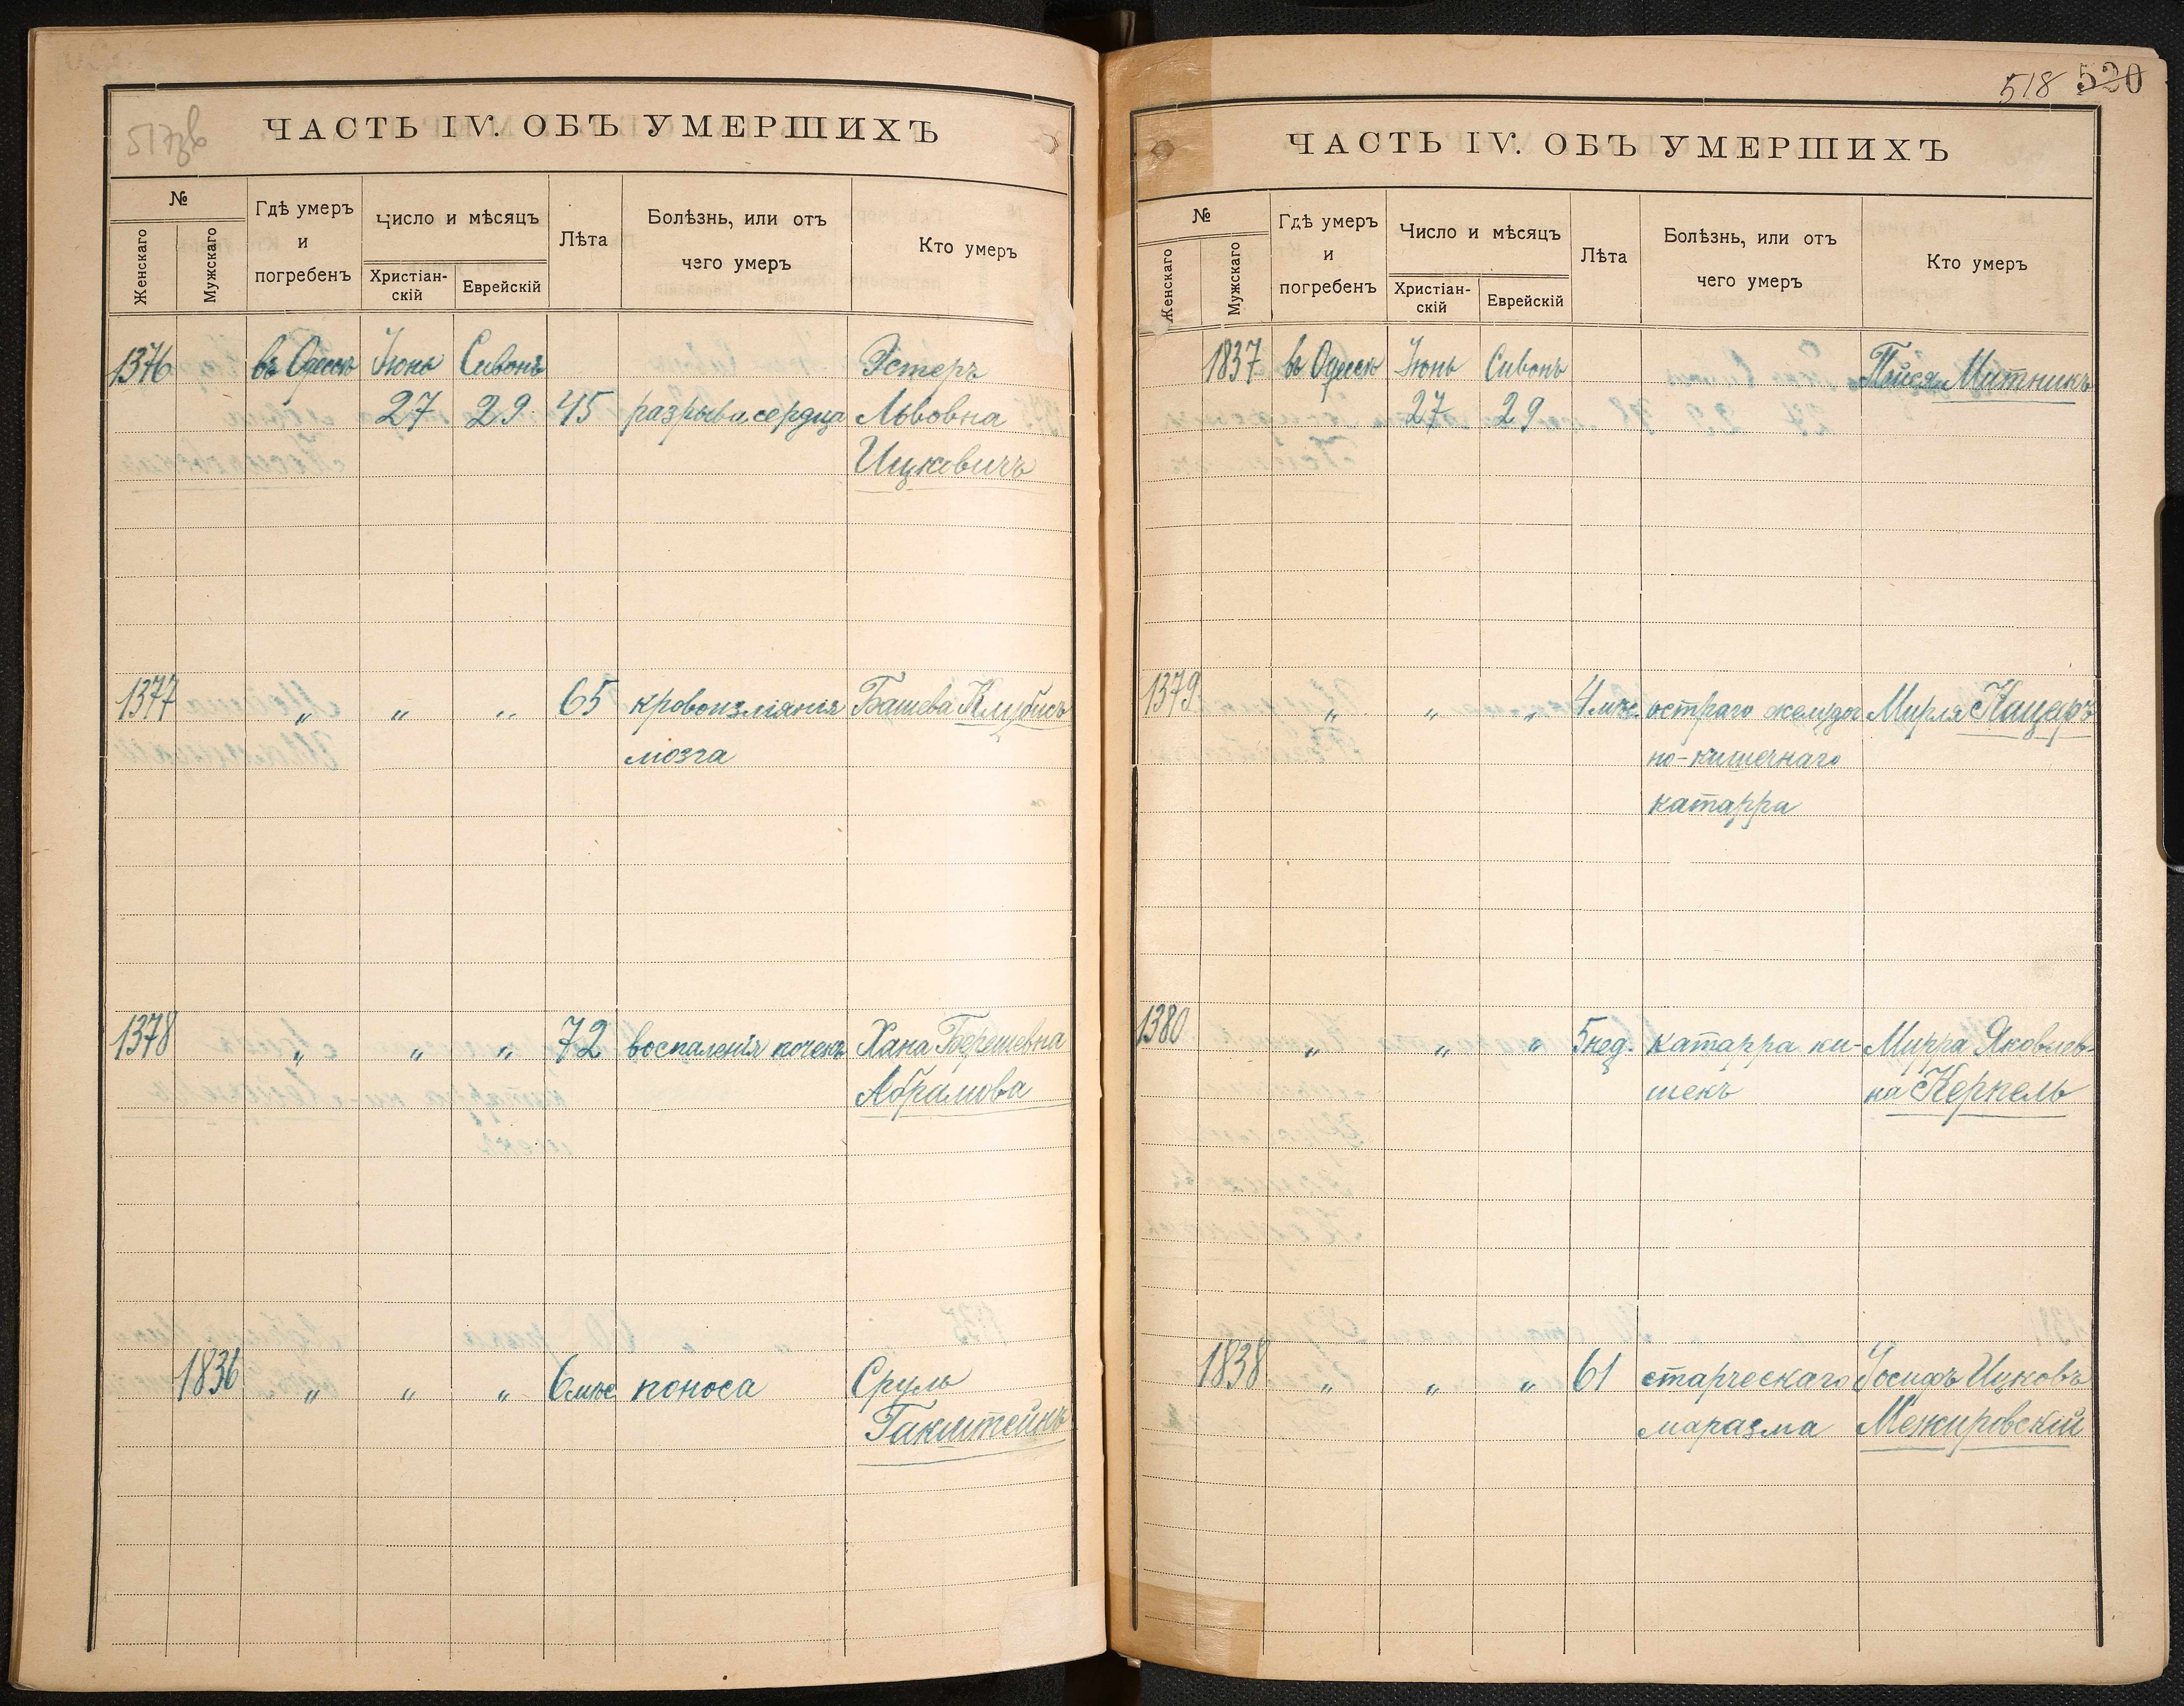 517зв
ЧАСТЬ IV. ОБЪ УМЕРШИХЪ
№
Женскаго
Мужскаго
Гдѣ умеръ
и
погребенъ
Число и мѣсяцъ
Христіан-
скій
Еврейскій
Лѣта
Болѣзнь, или отъ
чего умеръ
Кто умеръ
1376 въ Одессѣ Іюнь Сивонъ Эстеръ
27 29 45 разрыва сердца Львовна
Ицковичъ
1377 „ „ „ 65 кровоизліянія Башева
мозга
1378 „ „ „ 72 воспаленія почекъ Хана Берешевна
Абрамова
1836 „ „ „ 6 мѣс поноса Сруль
Гакштейнъ
518 530
ЧАСТЬ IV. ОБЪ УМЕРШИХЪ
№
Женскаго
Мужскаго
Гдѣ умеръ
и
погребенъ
Число и мѣсяцъ
Христіан-
скій
Еврейскій
Лѣта
Болѣзнь, или отъ
чего умеръ
Кто умеръ
1837 въ Одессѣ Іюнь Сивонъ Пейся Митникъ
27 29
1379 „ „ „ 4 мѣс. остраго желудоч Мирля Кацеръ
но-кишечнаго
катарра
1380 „ „ „ 5 нед. катарра ки- Мирра Яковлев-
шекъ на Керпель
1838 „ „ „ 61 старческаго Іосифъ Ицковъ
маразма Межировскій